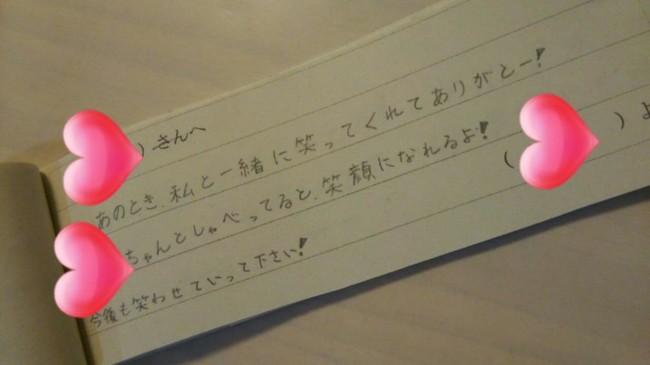 ) さんへ
あのとき、私と一緒に笑ってくれてありがとー!
ちゃんとしゃべってると、笑顔になれるよ!
今後も笑わせていって下さい!
( ) よ